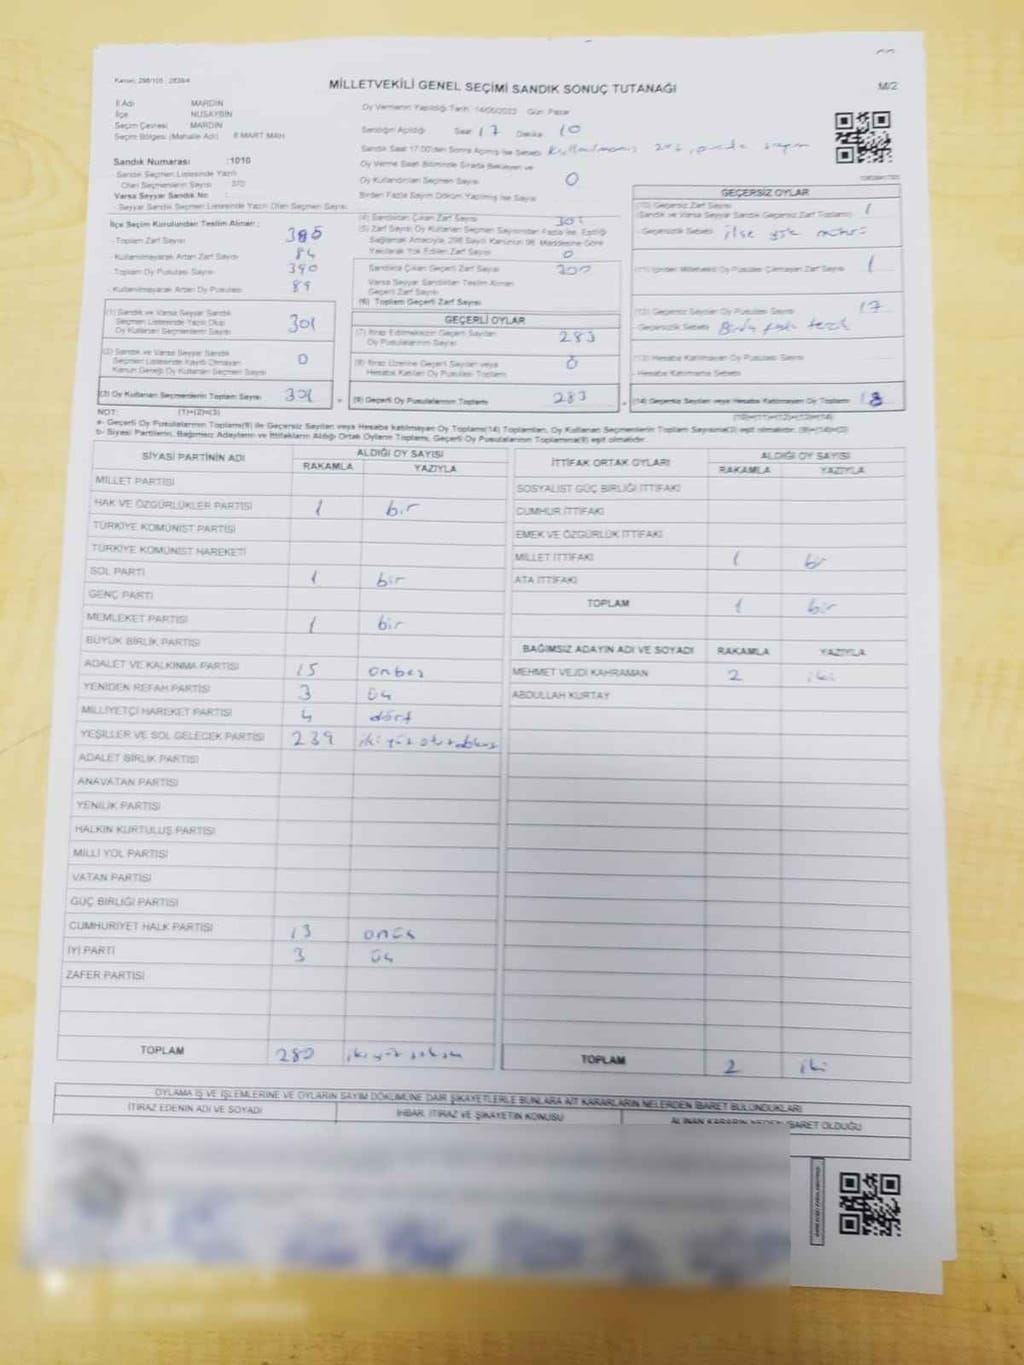 Kanun: 298/105 , 2839/4
MİLLETVEKİLİ GENEL SEÇİMİ SANDIK SONUÇ TUTANAĞI
M/2
İl Adı MARDİN
İlçe NUSAYBİN
Seçim Çevresi MARDİN
Seçim Bölgesi (Mahalle Adı) 8 MART MAH
Sandık Numarası :1010
Sandık Seçmen Listesinde Yazılı
Olan Seçmenlerin Sayısı 370
Varsa Seyyar Sandık No :
Seyyar Sandık Seçmen Listesinde Yazılı Olan Seçmen Sayısı:
Oy Vermenin Yapıldığı Tarih 14/05/2023 Gün: Pazar
Sandığın Açıldığı Saat 17 Dakika 10
Sandık Saat 17:00'den Sonra Açılmış İse Sebebi
Oy Verme Saati Bitiminde Sırada Bekleyen ve
Oy Kullandırılan Seçmen Sayısı 0
Birden Fazla Sayım Döküm Yapılmış İse Sayısı
İlçe Seçim Kurulundan Teslim Alınan :
- Toplam Zarf Sayısı 385
- Kullanılmayarak Artan Zarf Sayısı 84
- Toplam Oy Pusulası Sayısı 390
- Kullanılmayarak Artan Oy Pusulası 89
(1) Sandık ve Varsa Seyyar Sandık
Seçmen Listesinde Yazılı Olup
Oy Kullanan Seçmenlerin Sayısı 301
(2) Sandık ve Varsa Seyyar Sandık
Seçmen Listesinde Kayıtlı Olmayan
Kanun Gereği Oy Kullanan Seçmen Sayısı 0
(3) Oy Kullanan Seçmenlerin Toplam Sayısı 301
(4) Sandıktan Çıkan Zarf Sayısı 301
(5) Zarf Sayısı Oy Kullanan Seçmen Sayısından Fazla İse, Eşitliği
Sağlamak Amacıyla, 298 Sayılı Kanunun 98. Maddesine Göre
Yakılarak Yok Edilen Zarf Sayısı 0
Sandıkta Çıkan Geçerli Zarf Sayısı 300
Varsa Seyyar Sandıktan Teslim Alınan
Geçerli Zarf Sayısı
(6) Toplam Geçerli Zarf Sayısı
GEÇERLİ OYLAR
(7) İtiraz Edilmeksizin Geçerli Sayılan
Oy Pusulalarının Sayısı 283
(8) İtiraz Üzerine Geçerli Sayılan veya
Hesaba Katılan Oy Pusulası Toplamı 0
(9) Geçerli Oy Pusulalarının Toplamı 283
GEÇERSİZ OYLAR
(10) Geçersiz Zarf Sayısı
(Sandık ve Varsa Seyyar Sandık Geçersiz Zarf Toplamı) 1
- Geçersizlik Sebebi ilse yok mührü
(11) İçinden Milletvekili Oy Pusulası Çıkmayan Zarf Sayısı 1
(12) Geçersiz Sayılan Oy Pusulası Sayısı 17
- Geçersizlik Sebebi Birden fazla tercih
(13) Hesaba Katılmayan Oy Pusulası Sayısı
- Hesaba Katılmama Sebebi
(14) Geçersiz Sayılan veya Hesaba Katılmayan Oy Toplamı 18
NOT: (1)+(2)=(3) (10)+(11)+(12)+(13)=(14)
a- Geçerli Oy Pusulalarının Toplamı(9) ile Geçersiz Sayılan veya Hesaba katılmayan Oy Pusulası Toplamı(14) Toplamları, Oy Kullanan Seçmenlerin Toplam Sayısına(3) eşit olmalıdır. (9)+(14)=(3)
b- Siyasi Partilerin, Bağımsız Adayların ve İttifakların Aldığı Ortak Oyların Toplamı, Geçerli Oy Pusulalarının Toplamına(9) eşit olmalıdır.
SİYASİ PARTİNİN ADI ALDIĞI OY SAYISI
RAKAMLA YAZIYLA
MİLLET PARTİSİ
HAK VE ÖZGÜRLÜKLER PARTİSİ 1 bir
TÜRKİYE KOMÜNİST PARTİSİ
TÜRKİYE KOMÜNİST HAREKETİ
SOL PARTİ 1 bir
GENÇ PARTİ
MEMLEKET PARTİSİ 1 bir
BÜYÜK BİRLİK PARTİSİ
ADALET VE KALKINMA PARTİSİ 15 onbeş
YENİDEN REFAH PARTİSİ 3 üç
MİLLİYETÇİ HAREKET PARTİSİ 4 dört
YEŞİLLER VE SOL GELECEK PARTİSİ 239 iki yüz otuzdokuz
ADALET BİRLİK PARTİSİ
ANAVATAN PARTİSİ
YENİLİK PARTİSİ
HALKIN KURTULUŞ PARTİSİ
MİLLİ YOL PARTİSİ
VATAN PARTİSİ
GÜÇ BİRLİĞİ PARTİSİ
CUMHURİYET HALK PARTİSİ 13 onüç
İYİ PARTİ 3 üç
ZAFER PARTİSİ
TOPLAM 280 iki yüz seksen
İTTİFAK ORTAK OYLARI ALDIĞI OY SAYISI
RAKAMLA YAZIYLA
SOSYALİST GÜÇ BİRLİĞİ İTTİFAKI
CUMHUR İTTİFAKI
EMEK VE ÖZGÜRLÜK İTTİFAKI
MİLLET İTTİFAKI 1 bir
ATA İTTİFAKI
TOPLAM 1 bir
BAĞIMSIZ ADAYIN ADI VE SOYADI RAKAMLA YAZIYLA
MEHMET VEJDİ KAHRAMAN 2 iki
ABDULLAH KURTAY
TOPLAM 2 iki
OYLAMA İŞ VE İŞLEMLERİNE VE OYLARIN SAYIM DÖKÜMÜNE DAİR ŞİKAYETLERLE BUNLARA AİT KARARLARIN NELERDEN İBARET BULUNDUKLARI
İTİRAZ EDENİN ADI VE SOYADI İHBAR, İTİRAZ VE ŞİKAYETİN KONUSU ALINAN KARARIN NEDEN İBARET OLDUĞU